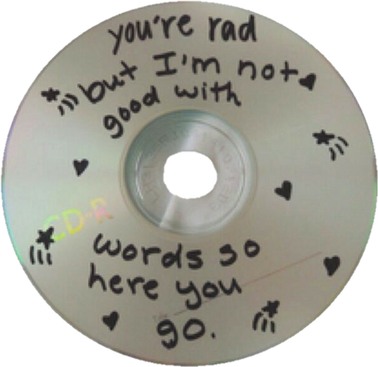 you're rad
but I'm not
good with
CD-R
words so
here you
go.